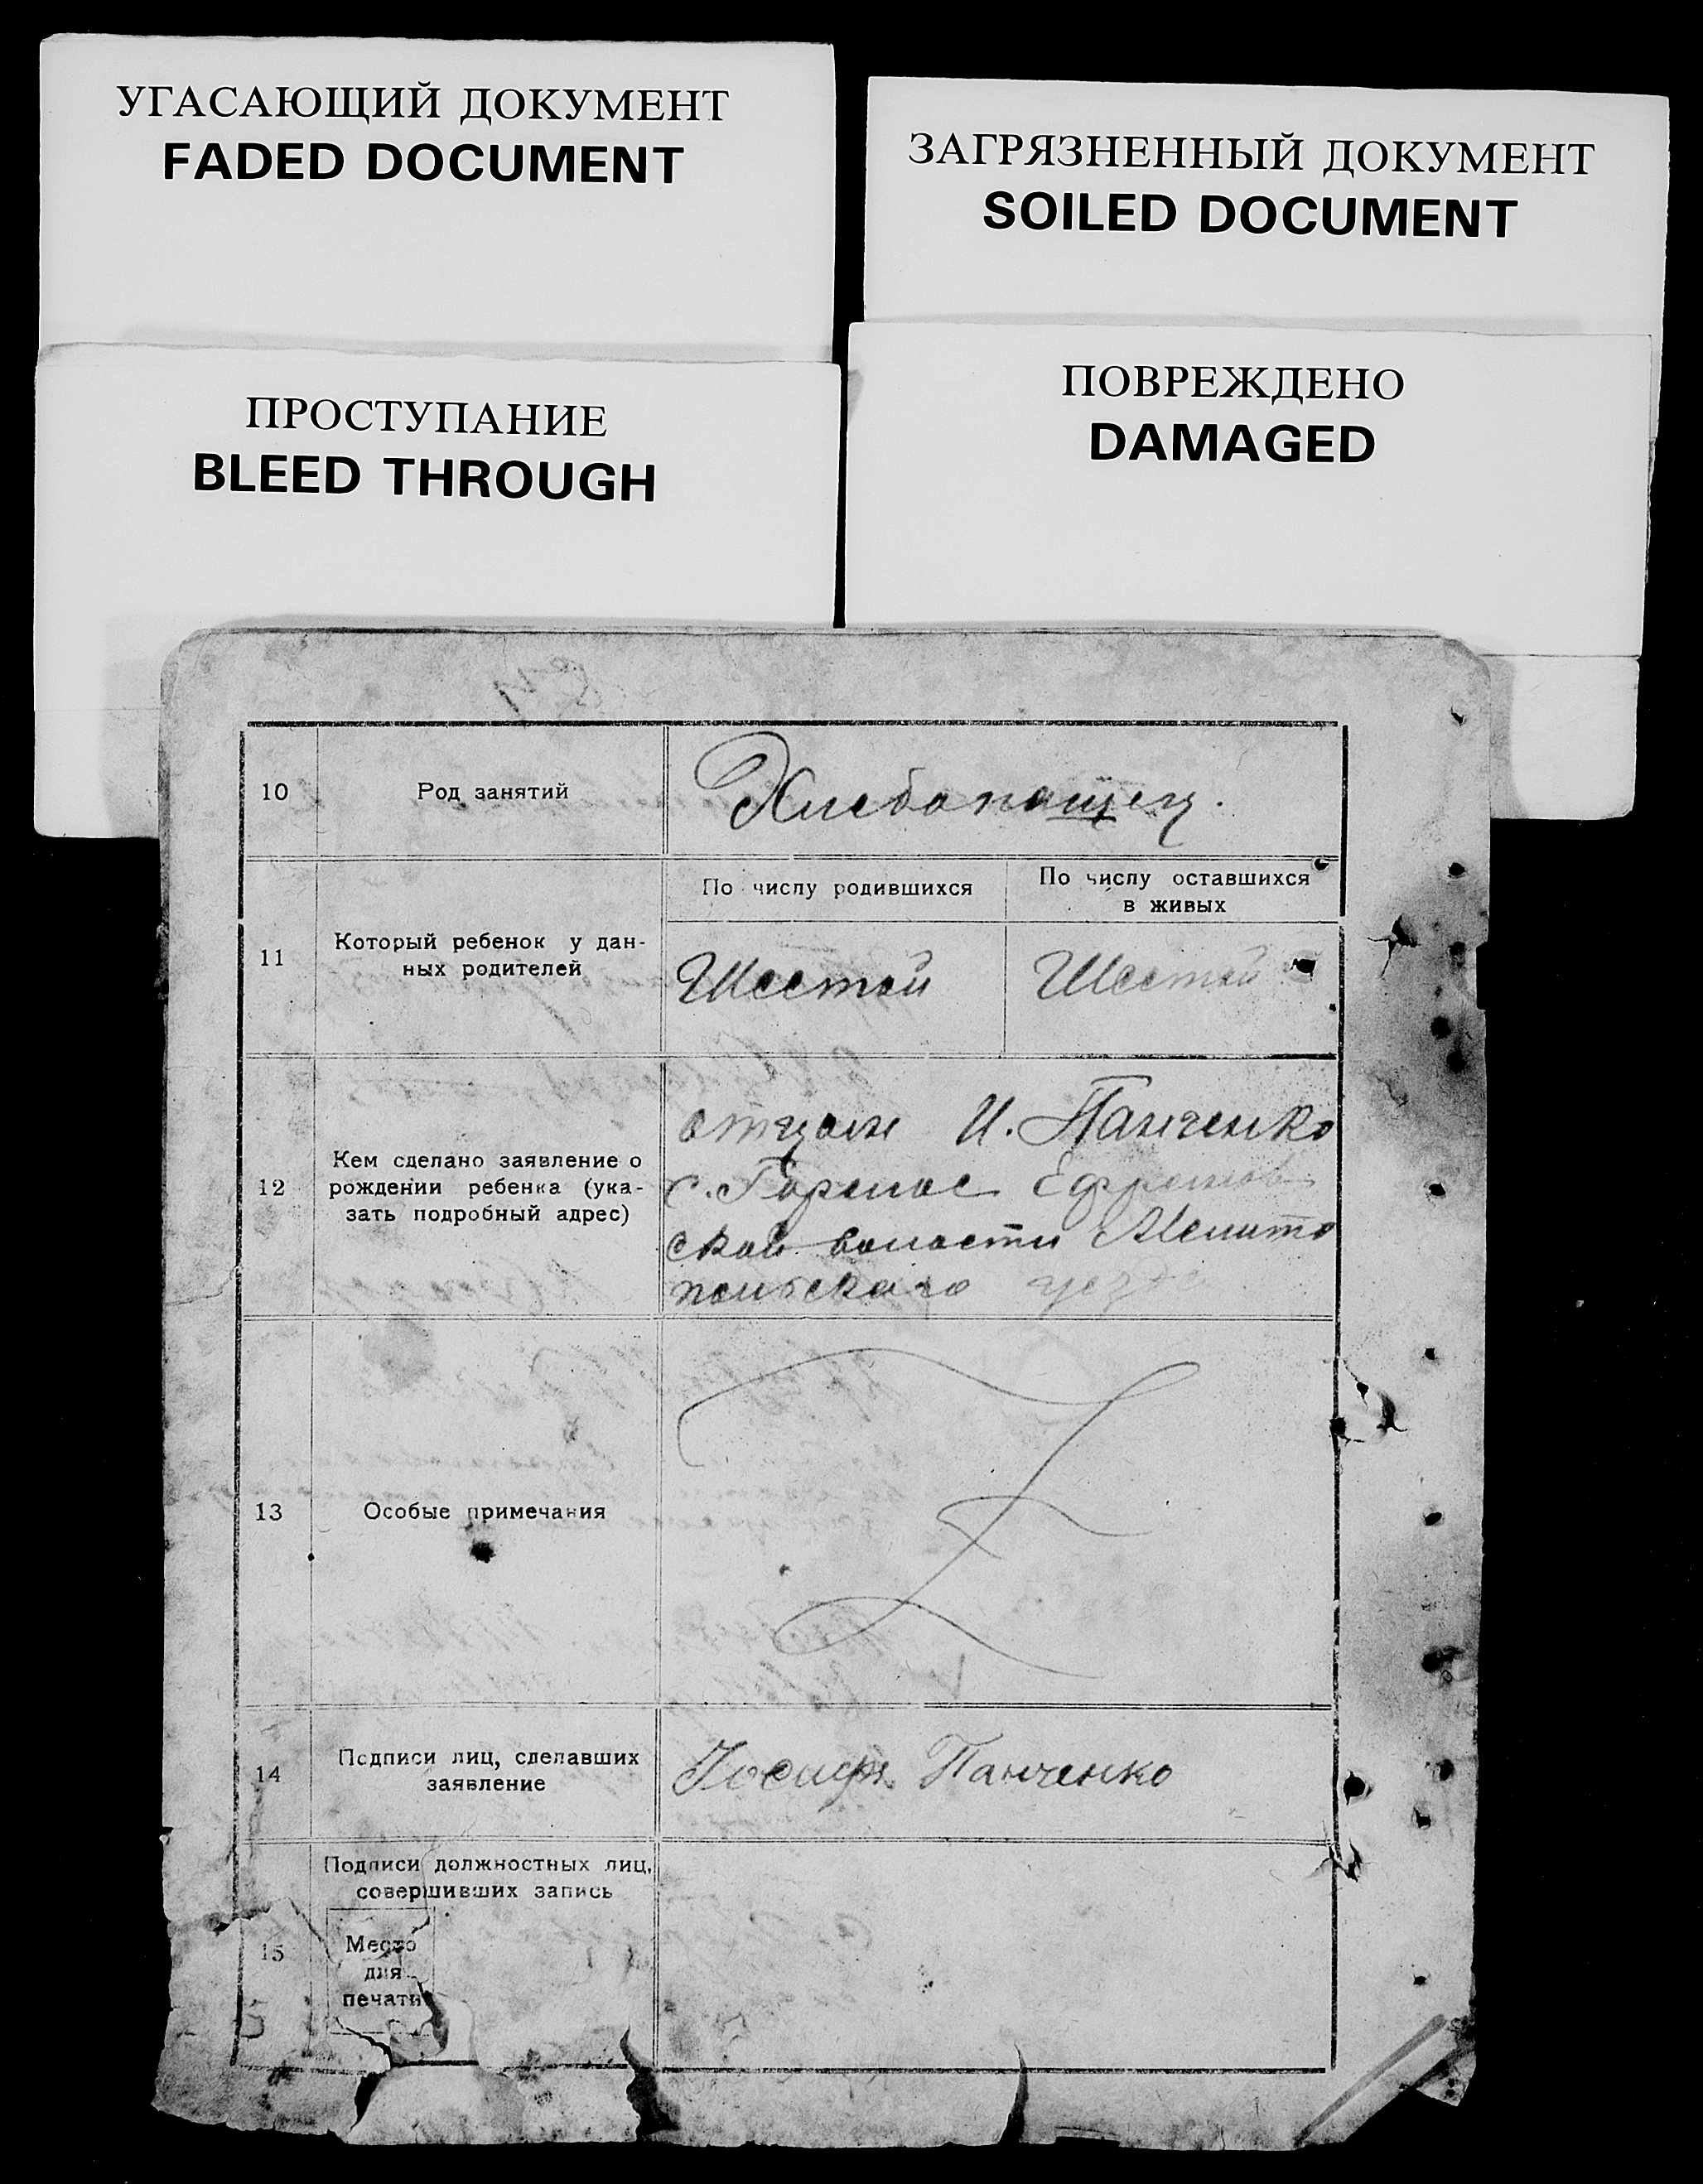 УГАСАЮЩИЙ ДОКУМЕНТ
FADED DOCUMENT
ЗАГРЯЗНЕННЫЙ ДОКУМЕНТ
SOILED DOCUMENT
ПРОСТУПАНИЕ
BLEED THROUGH
ПОВРЕЖДЕНО
DAMAGED
10 Род занятий Хлебопащец.
11 Который ребенок у дан-
ных родителей
По числу родившихся
По числу оставшихся
в живых
Шестой Шестой
12 Кем сделано заявление о
рождении ребенка (ука-
зать подробный адрес)
отцом И. Панченко
с. Ефремов
ской волости Мелито
польского уезда
13 Особые примечания
14 Подписи лиц, сделавших
заявление
Иосиф Панченко
15 Подписи должностных лиц,
совершивших запись
Место
для
печати